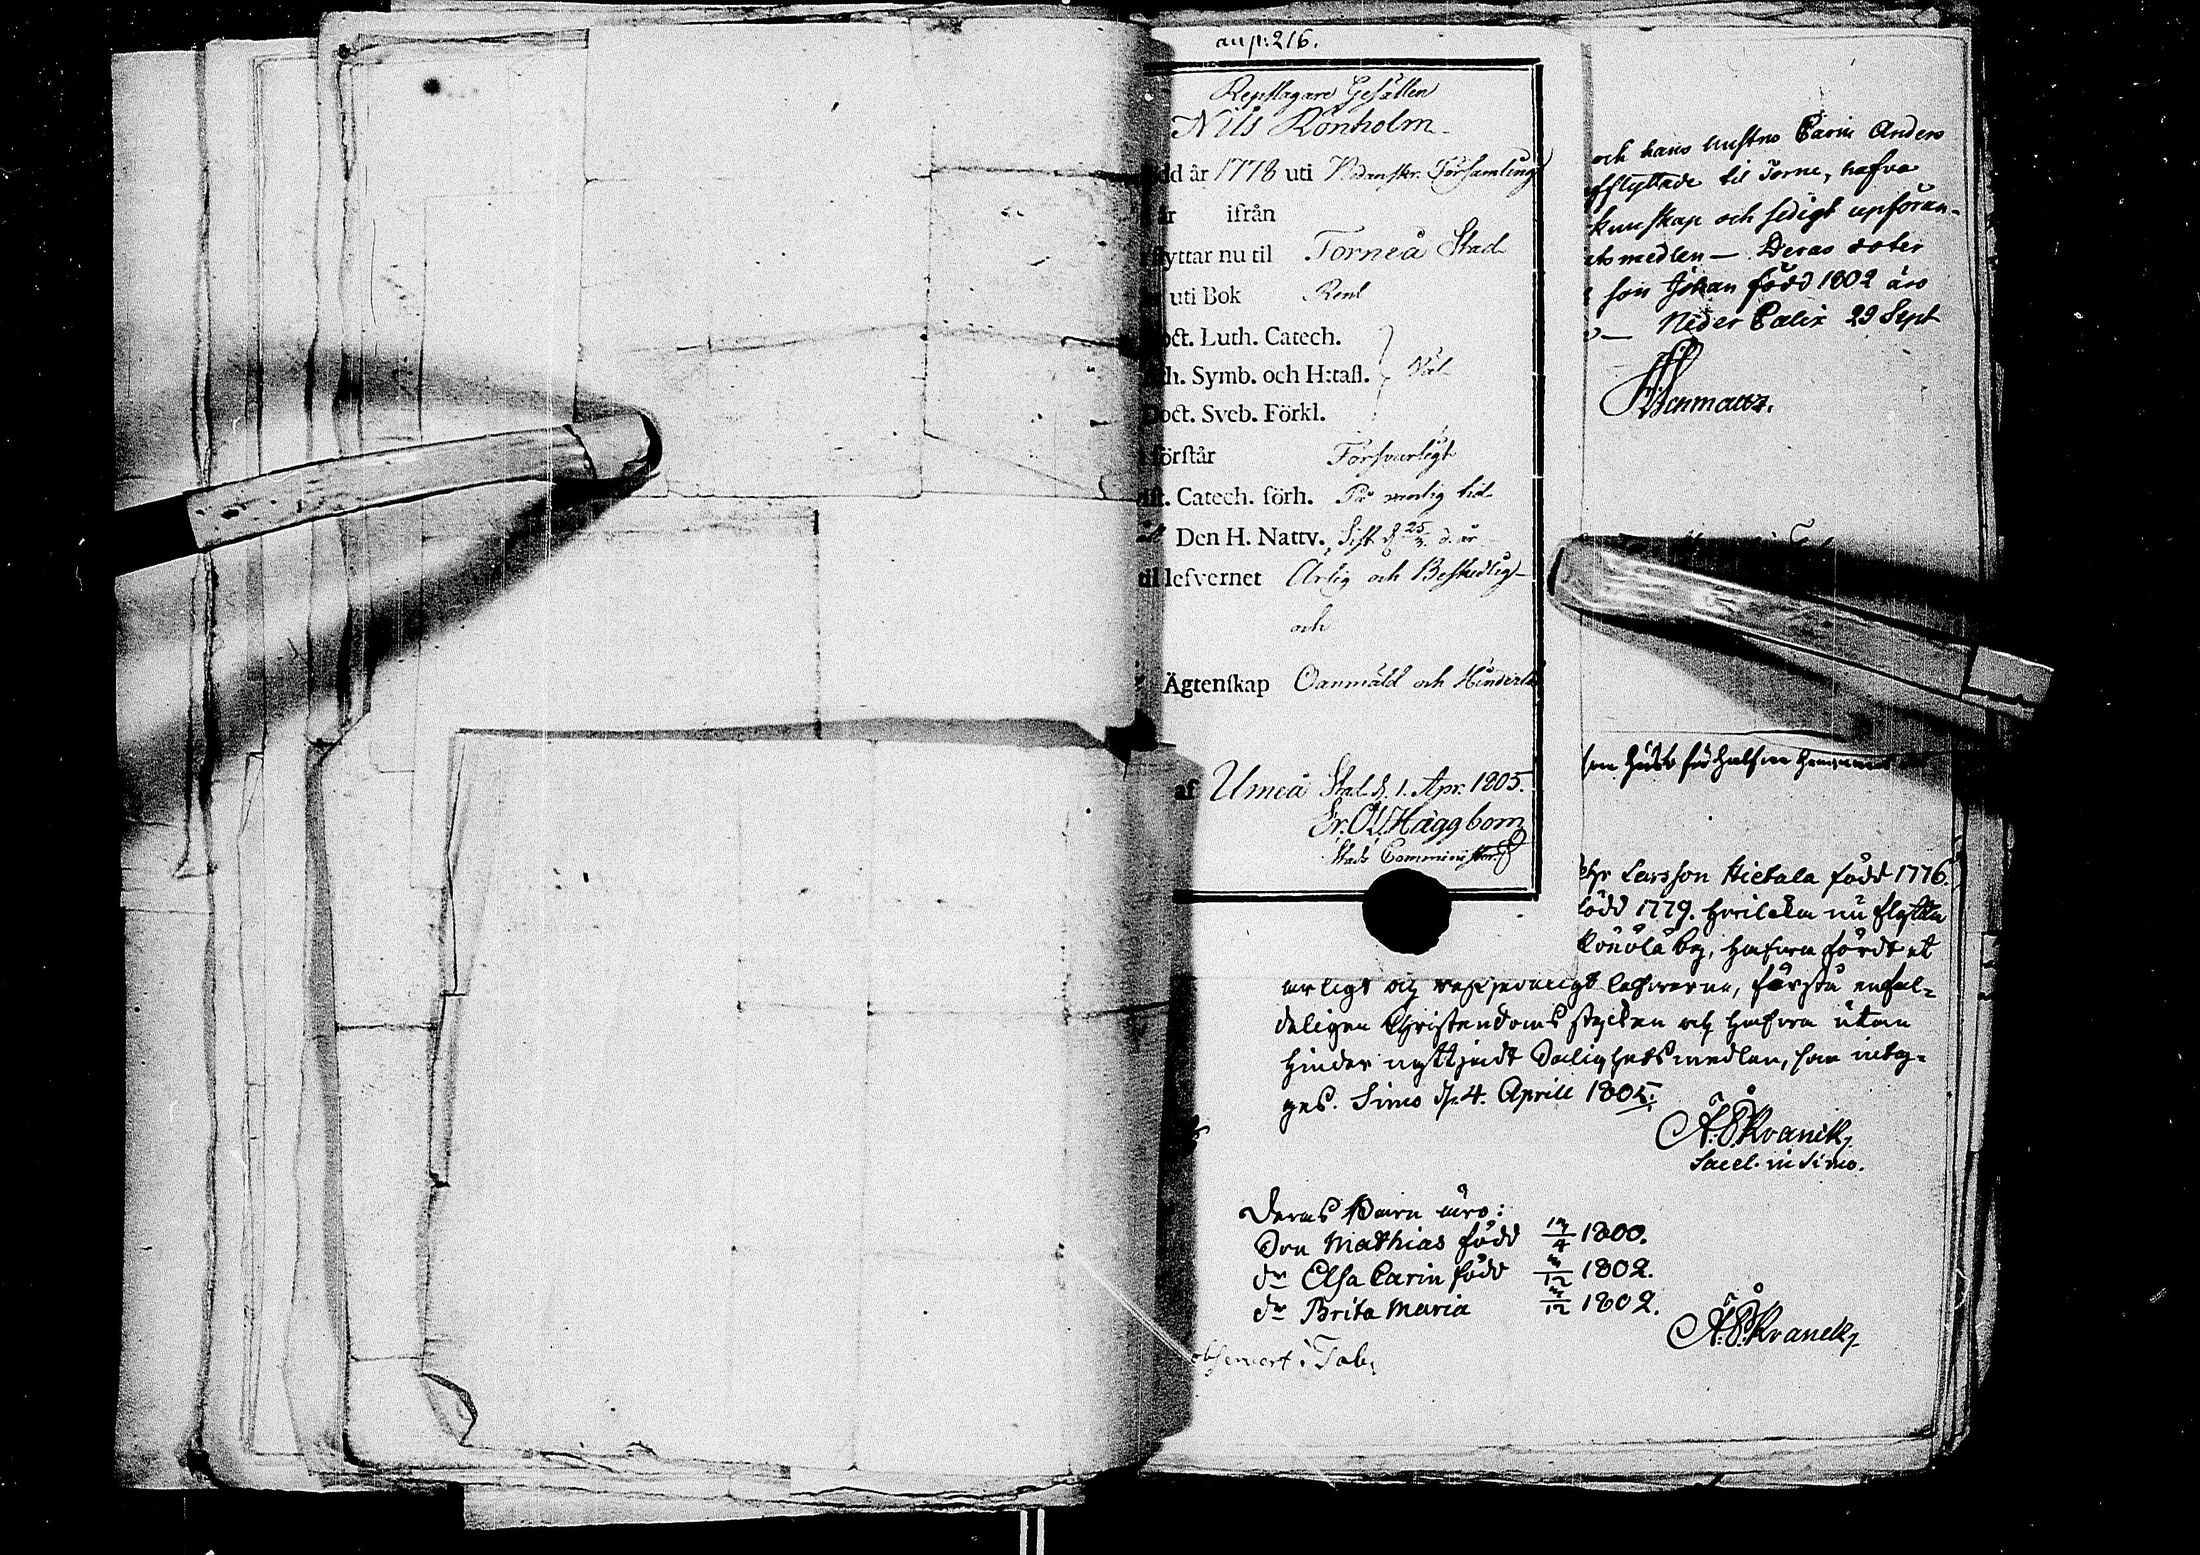 an p: 216.
Repslagare Gesällen
Nils Rönholm
dd år 1778 uti Församling
år ifrån
flyttar nu til Torneå Stad
uti Bok Rent
oct. Luth. Catech.
h. Symb. och H:tafl. Väl
Doct. Sveb. Förkl.
förstår Försvarligt
Catech. förh. På vanlig tid
Den H. Nattv. Sist d. 25/3 d. år
til lefvernet Ärlig och Beskedlig
och
Ägtenskap Oanmäld och Hinderlös
af Umeå Stad d. 1. Apr. 1805.
Er. Ol. Häggbom
Stads Comminister
och hans hustru Carin Anders
afflyttade til Torne, hafva
kunskap och sedigt upföran-
ets medlen — Deras doter
son Johan född 1802 äro
Neder Calix 29 Sept
Larsson Hietala född 1776.
född 1779. hvilcka nu flytta
by, hafva fördt et
ärligt och lefverne, förstå enfal-
deligen Christendoms stycken och hafva utan
hinder nyttjadt Salighets medlen, som intyg-
ges. Simo d. 4. Aprill 1805.
Kranck
Sacel. in Simo.
Deras Barn äro:
Son Mathias född 1800.
dr Elsa Carin född 1802.
dr Brita Maria 1802.
Kranck
observert i Tab.